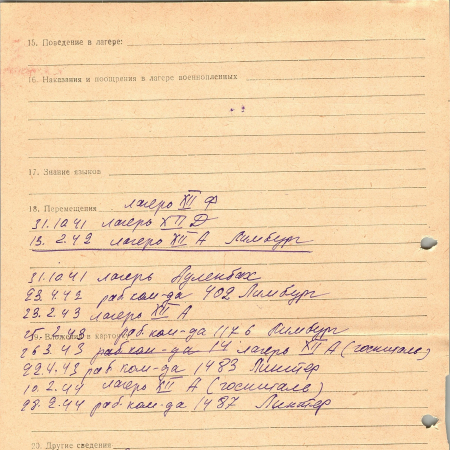 15. Поведение в лагере:
16. Наказания и поощрения в лагере военнопленных
17. Знание языков
18. Перемещения лагерь XII Ф
31.10.41 лагерь XII Д
13.2.42 лагерь XII А Лимбург
31.10.41 лагерь Ауленбах
23.4.42 раб. ком-да 402 Лимбург
23.2.43 лагерь XII А
25.2.43 раб. ком-да 1176 Лимбург
19. Вложения в карточку
26.3.43 раб. ком-да 14 лагерь XII А (госпиталь)
22.4.43 раб ком-да 1483 Линтер
10.2.44 лагерь XII А (госпиталь)
23.2.44 раб. ком-да 1487 Линтер
20. Другие сведения